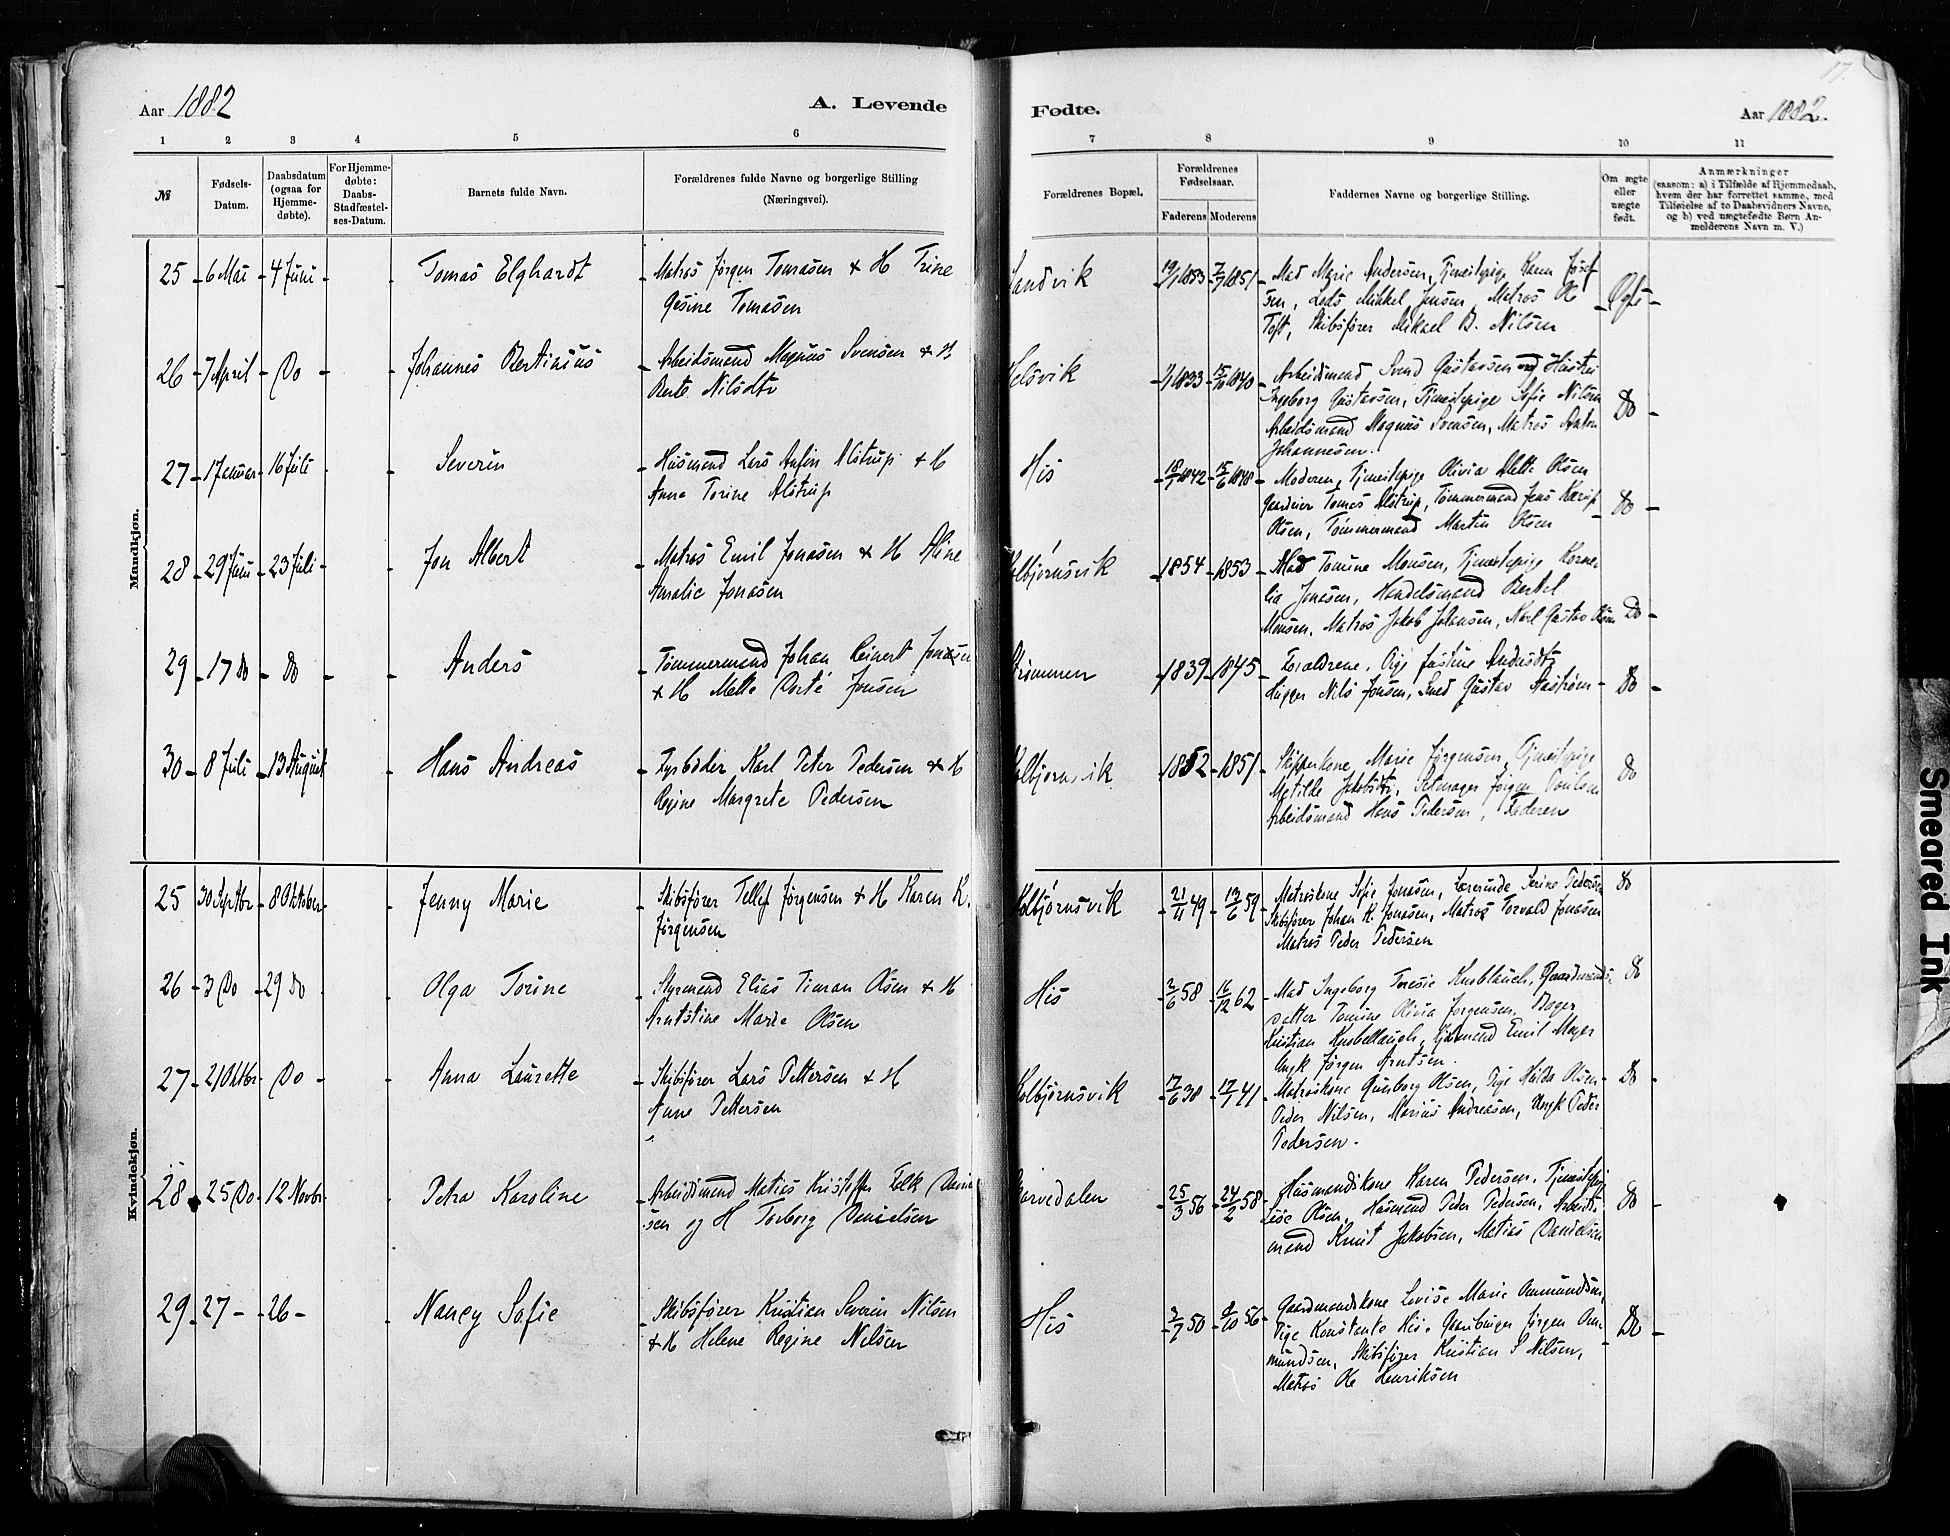 17.
Aar 1882
A. Levende
Fødte.
Aar 1882.
1 2 3 4 5 6 7 8 9 10 11
№
Fødsels-
Datum.
Daabsdatum
(ogsaa for
Hjemme-
døbte).
For Hjemme-
døbte:
Daabs-
Stadfæstel-
ses-Datum.
Barnets fulde Navn.
Forældrenes fulde Navne og borgerlige Stilling
(Næringsvei).
Forældrenes Bopæl.
Forældrenes
Fødselsaar.
Faderens Moderens
Faddernes Navne og borgerlige Stilling.
Om ægte
eller
uægte
født.
Anmærkninger
(saasom: a) i Tilfælde af Hjemmedaab,
hvem der har forrettet samme, med
Tilføielse af to Daabsvidners Navne,
og b) ved uægtefødte Børn An-
melderens Navn m. V.)
Mandkjøn.
25 6 Mai 4 Juni Tomas Elghardt
Matros Jørgen Tomasen & H Trine
Gesine Tomasen
Sandvik 19/1 1853 7/7 1851
Mad Marie Andersen, Tjenestepige Karen Josef
sen, Lods Mikkel Jensen, Matros Ole
Toft, Skibsfører Mikael B. Nilsen
Ægte
26 7 April Do Johannes Bertinius
Arbeidsmand Magnus Svensen & H
Berte Nilsdtr
Helsvik 1833 15/10 1840
Arbeidsmand Svend Gustavsen og Hustru
Ingeborg Gustavsen, Tjenestepige Sofie Nilsen
Arbeidsmand Magnus Svensen, Matros Anton
Johannesen.
Do
27 1 Januar 16 Juli Severin
Husmand Lars Anfin Alstrup & H
Anna Torine Alstrup
His 18/1 1842 15/6 1848
Moderen, Tjenestepige Olivia Mette Olsen
Gaardeier Tomas Alstrup, Tømmermand Jens
Olsen, Tømmermand Martin Olsen
Do
28 29 Juni 23 Juli Jon Albert
Matros Emil Jonasen & H Aline
Amalie Jonasen
Kolbjørnsvik 1854 1853
Mad Tomine Monsen, Tjenestepige Korne-
lia Jonasen, Handelsmand Bertel
Monsen, Matros Jakob Johansen, Karl Gustav Olsen
Do
29 17 Do Do Anders
Tømmermand Johan Reinert Jonsen
& H Mette Dorte Jonsen
Strømmen 1839 1845
Forældrene, Pige Justine Andersdtr
Nils Jonsen, Smed Gustav Aastrøm
Do
30 8 Juli 13 August Hans Andreas
Fyrbøder Karl Peter Pedersen & H
Regine Margrete Pedersen
Kolbjørnsvik 1852 1851
Skipperkone Marie Jørgensen, Tjenestepige
Matilde Jakobsdtr, Jørgen Poulsen
Arbeidsmand Hans Pedersen, Faderen
Do
Kvindekjøn.
25 30 Septbr 8 Oktober Jenny Marie
Skibsfører Tellef Jørgensen & H Karen K.
Jørgensen
Kolbjørnsvik 21/11 49 13/6 59
Matroskone Sofie Jonasen, Lærerinde Serine Pedersen
Skibsfører Johan K. Jonasen, Matros Torvald Jonasen
Matros Peder Pedersen
Do
26 3 Do 29 Do Olga Torine
Styrmand Elias Timran Olsen & H
Arntstine Marie Olsen
His 2/6 58 16/12 62
Mad Ingeborg Teresie Knoblauch, Gaardmands-
datter Tomine Olivia Jørgensen, Bager
Kristian Knoblauch, Emil Moger
Ungk Jørgen Arntsen.
Do
27 21 Oktbr Do Anna Laurette
Skibsfører Lars Pettersen & H
Anne Pettersen
Kolbjørnsvik 17/6 38 12/1 41
Matroskone Gunborg Olsen, Pige Hulda Olsen
Peder Nilsen, Marius Andreasen, Ungk Peder
Pedersen.
Do
28 25 Do 12 Novbr Petra Karoline
Arbeidsmand Matias Kristoffer Falk Daniel
sen og H Torborg Danielsen
25/3 56 24/2 58
Husmandskone Karen Pedersen, Tjenestepig
Lise Olsen, Husmand Peder Pedersen, Arbeids
mand Knut Jakobsen, Matias Danielsen
Do
29 27 - 26 - Nancy Sofie
Skibsfører Kristian Severin Nilsen
& H Helene Regine Nilsen
His 3/7 50 9/10 56
Gaardmandskone Lovise Marie Ommundsen,
Pige Konstante His, Gaardbruger Jørgen Om-
mundsen, Skibsfører Kristian S Nilsen,
Matros Ole Henriksen
Do
Smeared Ink